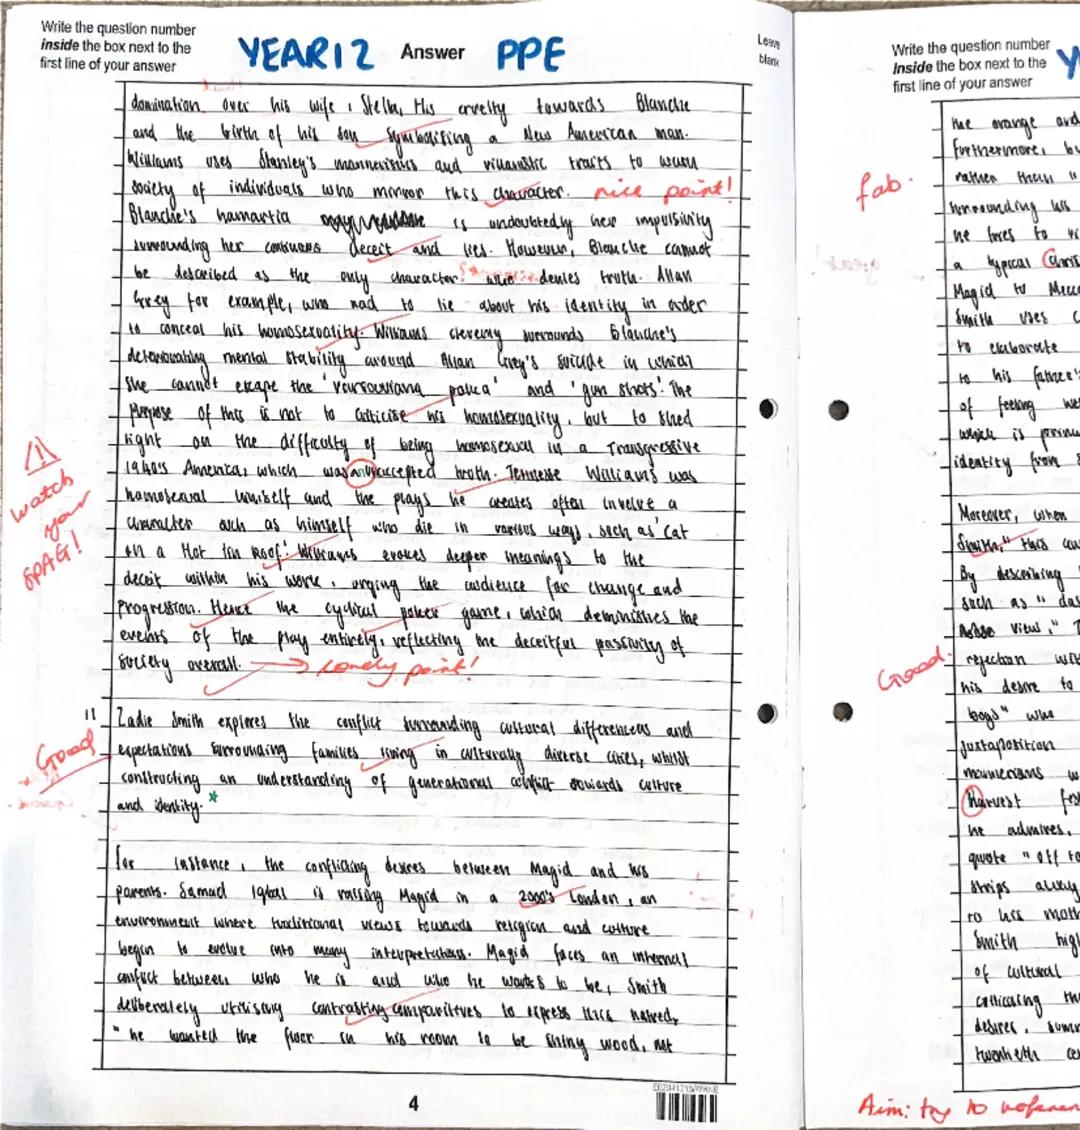 Write the question number
inside the box next to the
first line of your answer
YEAR12 Answer PPE
Leave
blank
domination over his wife, Stella, His cruelty towards Blanche
and the birth of his son symbolising a New American man.
Williams uses Stanley's mannerisms and villanistic traits to warn
society of individuals who mirror this character. nice point!
Blanche's hamartia is undoubtedly her impulsivity
surrounding her continuous deceit and lies. However, Blanche cannot
be described as the only character who denies truth. Allan
Grey for example, who had to lie about his identity in order
to conceal his homosexuality. Williams cleverly surrounds Blanche's
deteriorating mental stability around Allan Grey's suicide in which
she cannot escape the 'varsouviana polka' and 'gun shots'. The
purpose of this is not to criticise his homosexuality, but to shed
light on the difficulty of being homosexual in a Transgressive
1940's America, which was an unaccepted truth. Tennesse Williams was
homosexual himself and the plays he creates often involve a
character such as himself who die in various ways, such as 'Cat
on a Hot tin Roof'. Williams evokes deeper meanings to the
deceit within his work, urging the audience for change and
progression. Hence the cyclical poker game, which deminishes the
events of the play entirely, reflecting the deceitful passivity of
society overall. → Lovely point!
watch
your
SPAG!
11
Good
Zadie Smith explores the conflict surrounding cultural differences and
expectations surrounding families living in culturally diverse cities, whilst
constructing an understanding of generational conflict towards culture
and identity. *
For instance, the conflicting desires between Magid and his
parents. Samad Iqbal is raising Magid in a 2000's London, an
environment where traditional views towards religion and culture
begin to evolve into many interpretations. Magid faces an internal
conflict between who he is and who he wants to be, Smith
deliberately utilising contrasting comparitives to express this hatred,
"he wanted the floor in his room to be shiny wood, not
4
Write the question number
inside the box next to the
first line of your answer
Y
the orange and
Furthermore, by
rather than "
fab.
surrounding his
he lives to
a typical Chris
Magid to Mecc
Smith uses
to elaborate
to his father's
of feeling
which is
identity from
Moreover, when
Smith," this
By describing
such as "
view,"
Good.
rejection
his desire to
boys" who
juxtaposition
mannerisms
Harvest
he admires,
quote "off to
strips away
to his moth
Smith high
of cultural
criticising
desires.
twentieth
Aim: try to